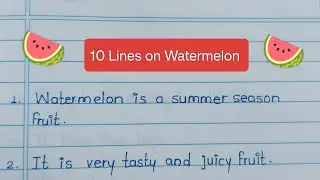 10 Lines on Watermelon
1. Watermelon is a summer season
fruit.
2. It is very tasty and juicy fruit.